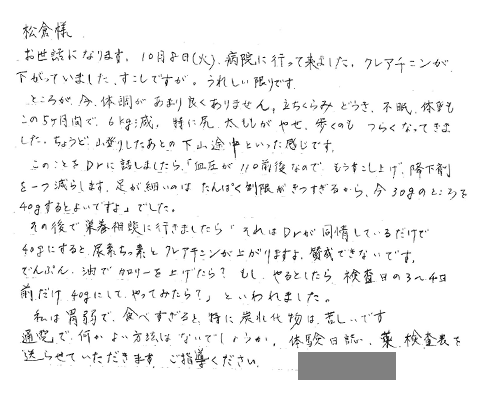 松倉様
お世話になります。10月8日(火)病院に行って来ました。クレアチニンが
下がっていました。すこしですが。うれしい限りです。
ところが、今、体調があまり良くありません。立ちくらみ どうき、不眠、体重も
この5ヶ月間で、6kg減。特に尻、太ももがやせ、歩くのも つらくなってきま
した。ちょうど山登りしたあとの下山途中といった感じです。
このことをDrに話しましたら「血圧が110前後なので、もうすこし上げ、降下剤
を一つ減らします。足が細いのは たんぱく制限がきつすぎるから、今30gのところを
40gするとよいですよ」でした。
その後で栄養相談に行きましたら「それはDrが同情しているだけで
40gにすると、尿素ちっ素とクレアチニンが上がりますよ。賛成できないです。
でんぷん、油でカロリーを上げたら?もし、やるとしたら 検査日の3〜4日
前だけ 40gにして、やってみたら?」といわれました。
私は胃弱で、食べすぎると、特に炭水化物は苦しいです
通院で、何かよい方法はないでしょうか。体験日誌、薬、検査表を
送らせていただきます ご指導ください。